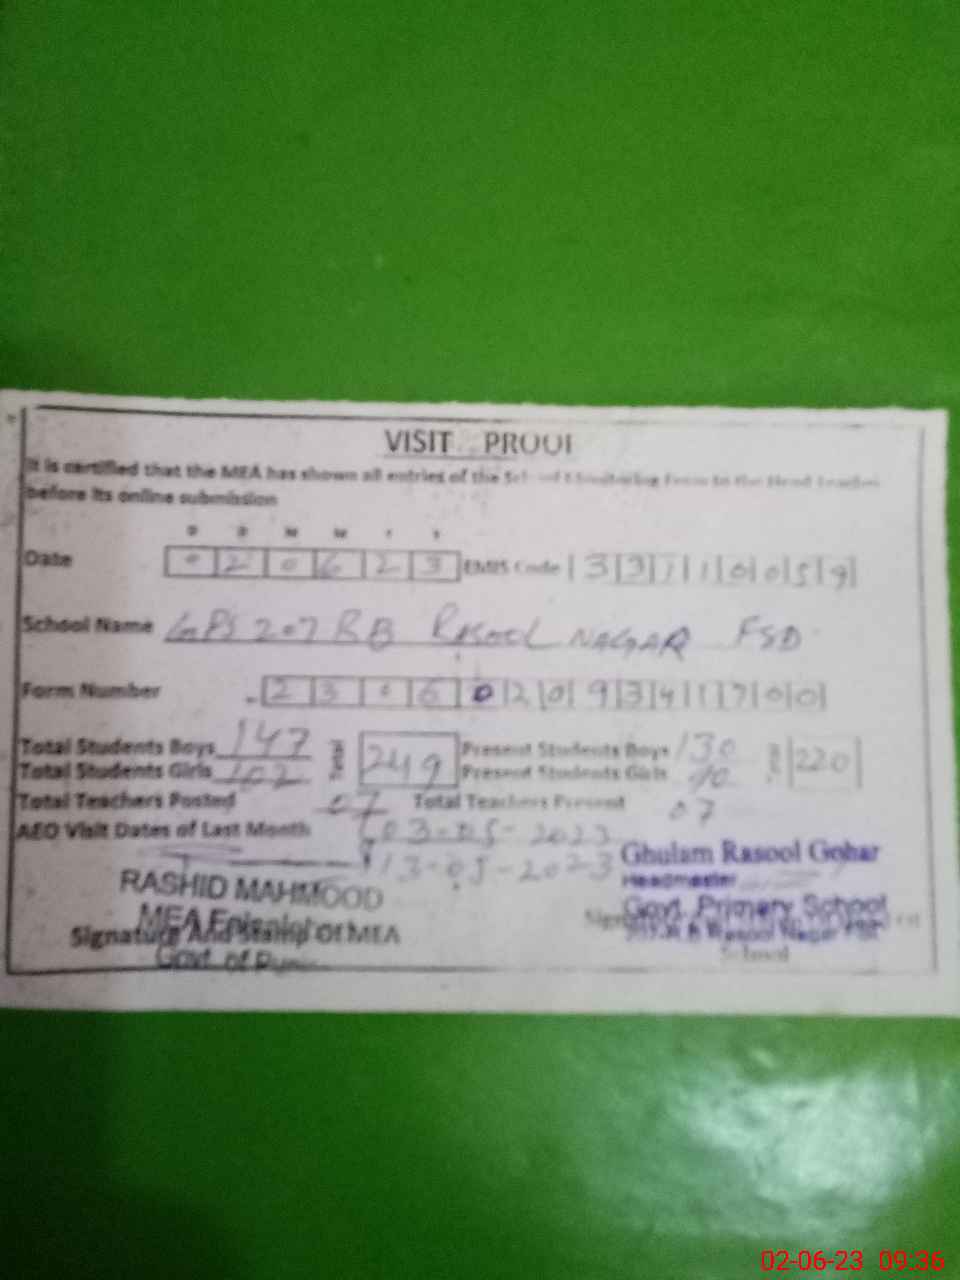 VISIT PROOF
It is certified that the MEA has shown all entries of the School Monitoring Form to the Head Teacher
before its online submission
D D M M Y Y
Date 0 2 0 6 2 3 EMIS Code 3 3 1 1 0 0 5 9
School Name GPS 207 RB RASOOL NAGAR FSD
Form Number 2 3 0 6 0 2 0 9 3 4 1 7 0 0
Total Students Boys 147 Total 249 Present Students Boys 130 220
Total Students Girls 102 Present Students Girls 90
Total Teachers Posted 07 Total Teachers Present 07
AEO Visit Dates of Last Month 03-05-2023
13-05-2023
Ghulam Rasool Gohar
Headmaster
RASHID MAHMOOD
MEA
Govt. Primary School
Signature And Stamp Of MEA
Rasool Nagar
Govt. of
School
02-06-23 09:36